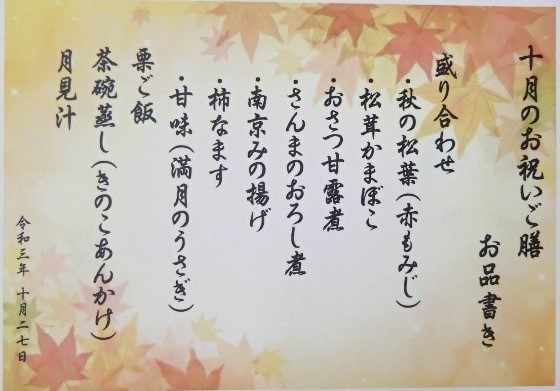 十月のお祝いご膳
お品書き
盛り合わせ
・秋の松葉(赤もみじ)
・松茸かまぼこ
・おさつ甘露煮
・さんまのおろし煮
・南京みの揚げ
・柿なます
・甘味(満月のうさぎ)
栗ご飯
茶碗蒸し(きのこあんかけ)
月見汁
令和三年 十月二七日